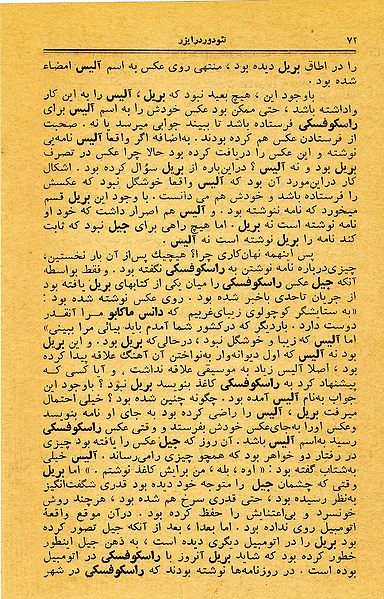 ۷۲ تئودوردرایزر
را در اطاق بریل دیده بود ، منتهی روی عکس به اسم آلیس امضاء
شده بود .
باوجود این ، هیچ بعید نبود که بریل ، آلیس را به این کار
واداشته باشد ، حتی ممکن بود عکس خودش را به اسم آلیس برای
راسکوفسکی فرستاده باشد تا ببیند جوابی میرسد یا نه . صحبت
از فرستادن عکس هم کرده بودند . به‌اضافه اگر واقعاً آلیس نامه‌یی
نوشته و این عکس را دریافت کرده بود حالا چرا عکس در تصرف
بریل بود و نه آلیس ؟ دراین‌باره از بریل سؤال کرده بود . اشکال
کار دراین‌مورد آن بود که آلیس واقعاً خوشگل نبود که عکسش
را فرستاده باشد و خودش هم می دانست . با وجود این بریل قسم
میخورد که نامه ننوشته بود . و آلیس هم اصرار داشت که خود او
نامه نوشته است نه بریل . اما هیچ راهی برای جیل نبود که ثابت
کند نامه را بریل نوشته است نه آلیس .
پس اینهمه نهان‌کاری چرا؟ هیچیك پس‌از آن بار نخستین،
چیزی‌درباره نامه نوشتن به راسکوفسکی نگفته بود . و فقط بواسطه
آنکه جیل عکس راسکوفسکی را میان یکی از کتابهای بریل یافته بود
از جریان تاحدی باخبر شده بود . روی عکس نوشته شده بود :
«به ستایشگر کوچولوی زیبای‌غربیم که دانس ماکابو مرا آنقدر
دوست دارد . باردیگر که درکشور شما آمدم باید بیائی مرا ببینی»
اما آلیس که زیبا و خوشگل نبود ، درحالی‌که بریل بود . و این بریل
بود نه آلیس که اول دیوانه‌وار به‌نواختن آن آهنگ علاقه پیدا کرده
بود ، اصلا آلیس زیاد به موسیقی علاقه نداشت ، و آیا کسی که
پیشنهاد کرد به راسکوفسکی کاغذ بنویسد بریل نبود ؟ باوجود این
جواب به‌نام آلیس آمده بود . چگونه چنین شده بود ؟ خیلی احتمال
میرفت بریل ، آلیس را راضی کرده بود به جای او نامه بنویسد
وعکس اورا به‌جای‌عکس خودش بفرستد و وقتی عکس راسکوفسکی
رسید به‌اسم آلیس باشد . آن روز که جیل عکس را یافته بود چیزی
در رفتار دو خواهر بود که همچو چیزی رامی‌رساند . آلیس خیلی
به‌شتاب گفته بود : « اوه ، بله ، من برایش کاغذ نوشتم . » اما بریل
وقتی که چشمان جیل را متوجه خود دیده بود قدری شگفت‌انگیز
به‌نظر رسیده بود ، حتی قدری سرخ هم شده بود ، هرچند روش
خونسرد و بی‌اعتنایش را حفظ کرده بود . درآن موقع واقعهٔ
اتومبیل روی نداده بود . اما بعدا ، بعد از آنکه جیل تصور کرده
بود بریل را در اتومبیل دیگری دیده است ، به ذهن جیل اینطور
خطور کرده بود که شاید بریل آنروز با راسکوفسکی در اتومبیل
بوده است . در روزنامه‌ها نوشته بودند که راسکوفسکی در شهر